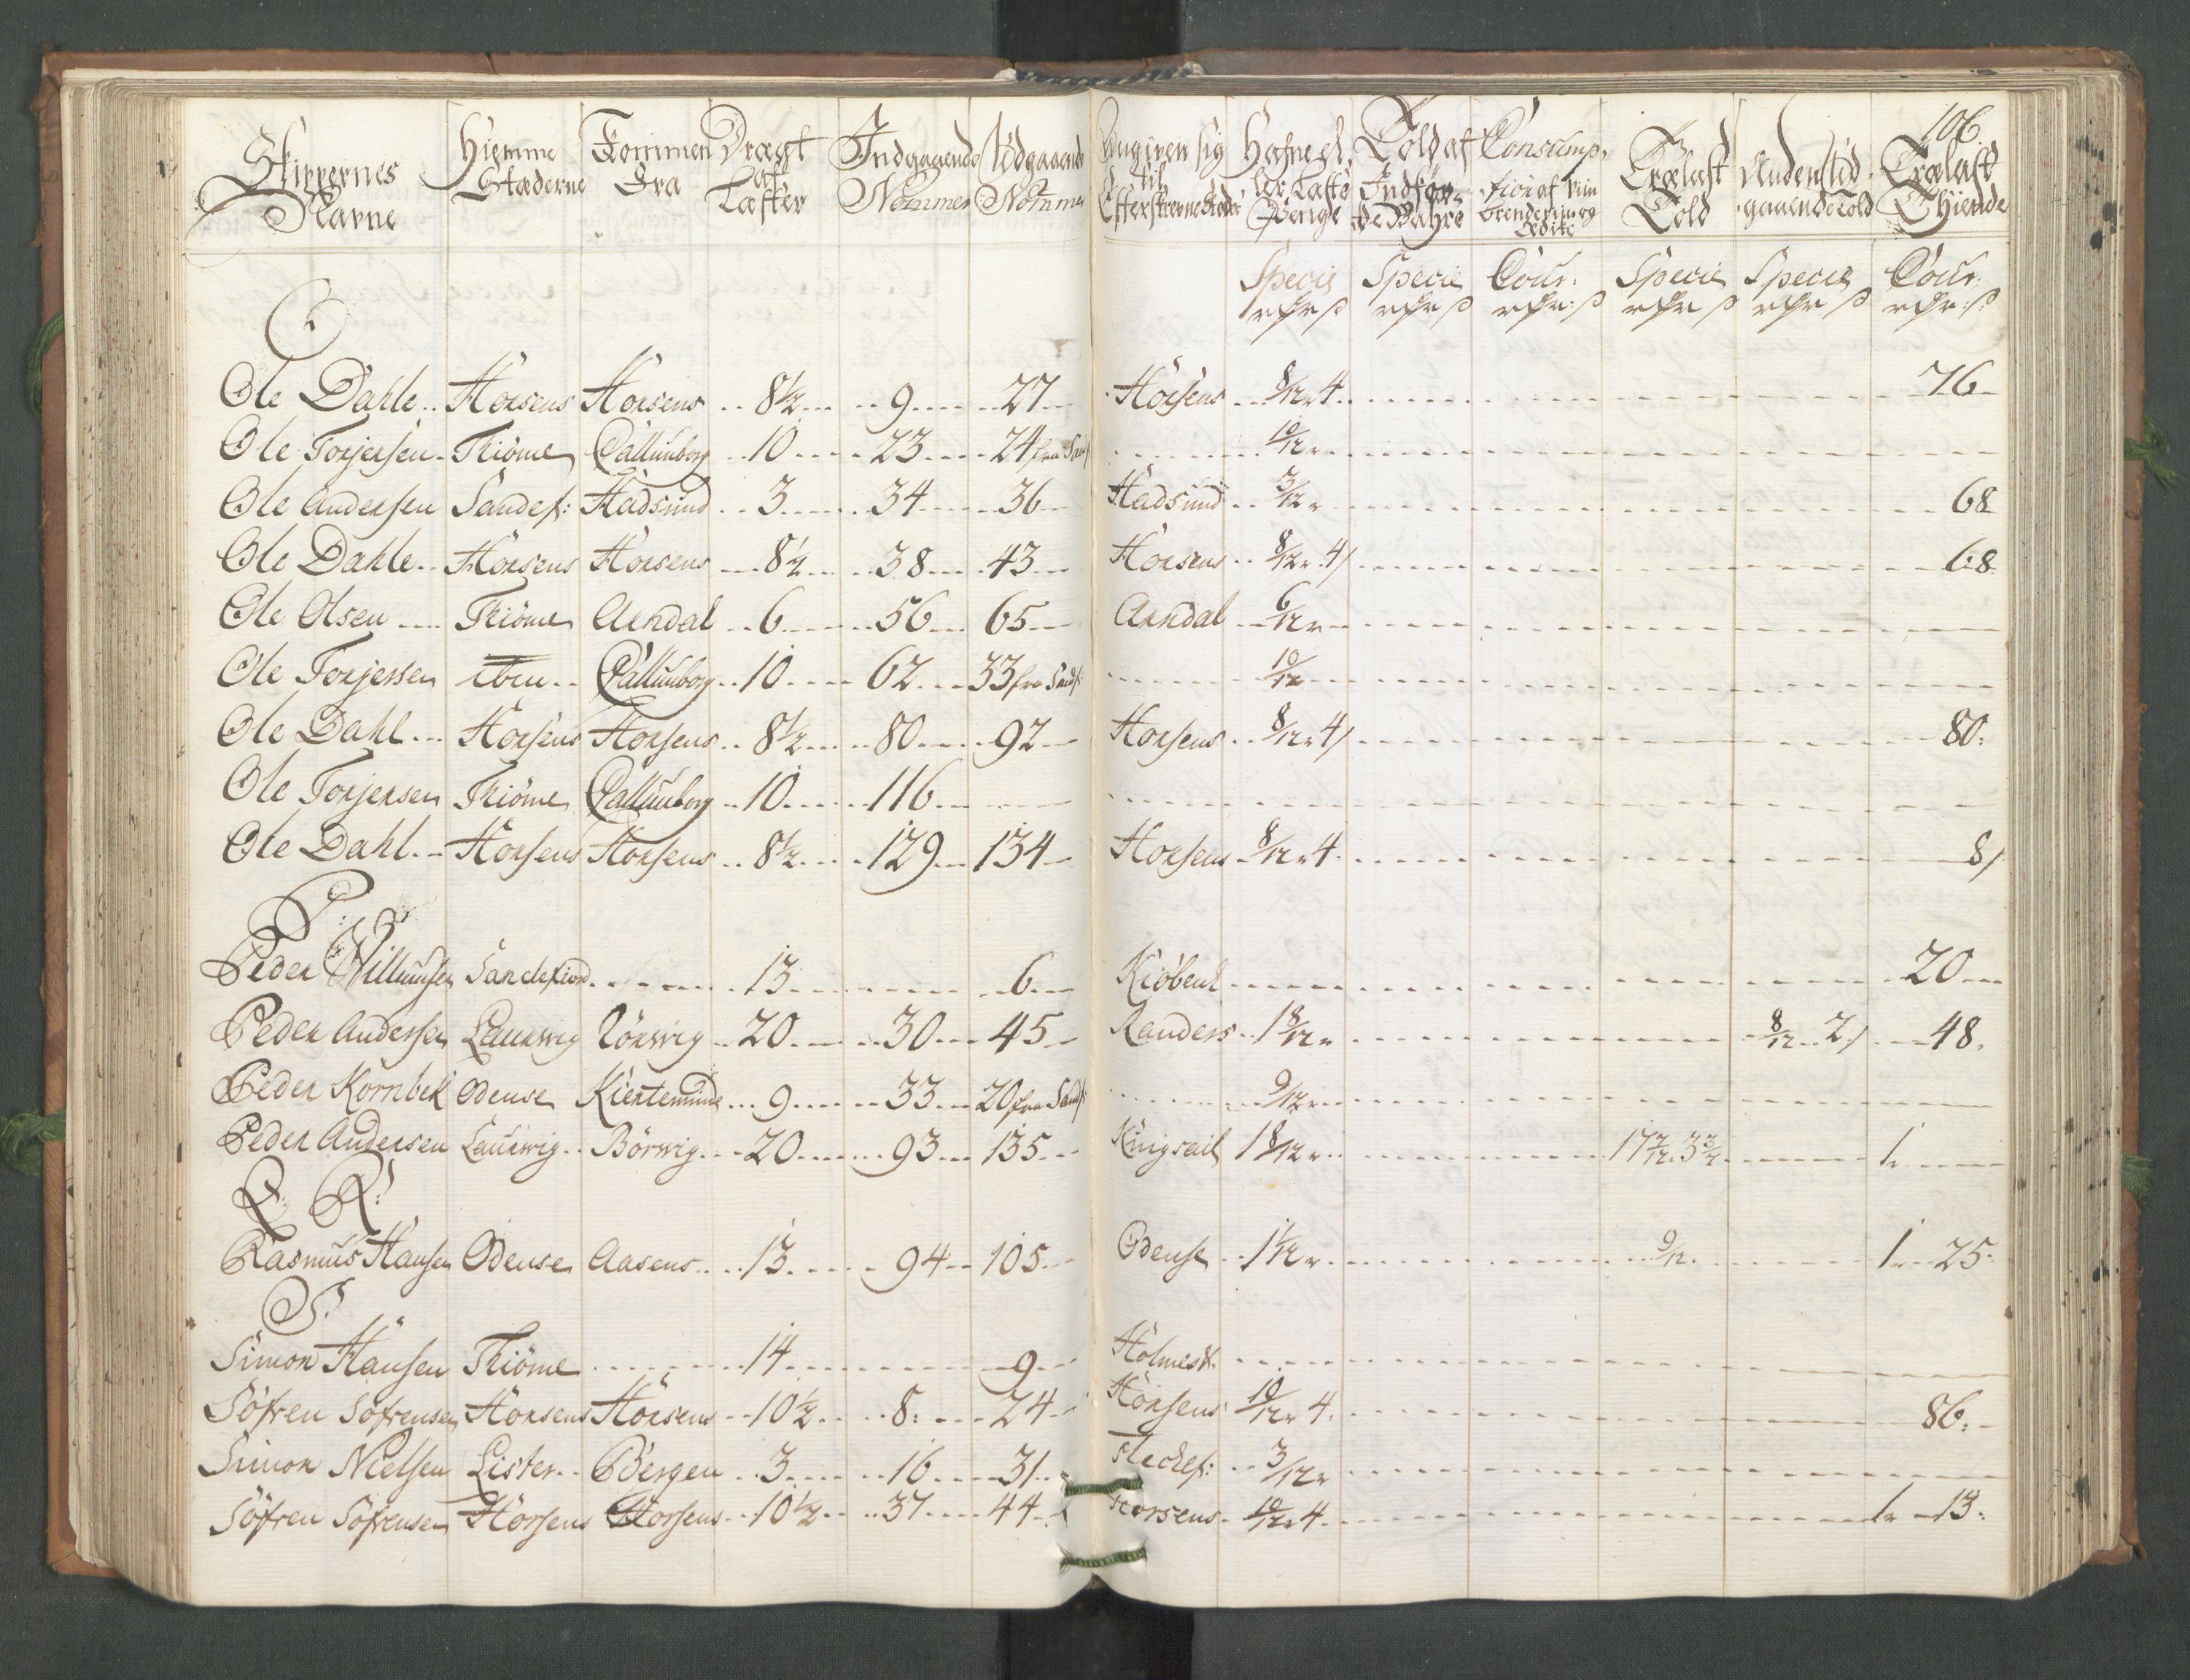 106.
Skippernes Navne | Hiemme Stæderne | Kommen Fra | Drægt af Læster | Indgaaende Nommer | Udgaaende Nommer | Angiven sig til Efterskrevne Stæder | Hafne el. ler Laste Penge | Told af Indför- te Wahre | Consump- tion af Viin Brendeviin og Edike | Trælast Told | Anden Ud- gaaende Told | Trælast Thiende
Specie rdr ß | Specie rdr ß | Cour: rdr: ß | Specie rdr ß | Specie rdr ß | Cour: rdr: ß
O
Ole Dahle .. Horsens Horsens .. 8½ .. 9 .. 27 Horsens .. 8/12 r 4 .. 76
Ole Torjersen - Tkiöme Callunborg .. 10 .. 23 .. 24 fra Sandf .. 10/12 r
Ole Andersen Sandef: Hadsund .. 3 .. 34 .. 36 Hadsund .. 3/12 r .. 68
Ole Dahle .. Horsens Horsens .. 8½ .. 38 .. 43 Horsens .. 8/12 r 4/ .. 68
Ole Olsen .. Tkiöme Arndal .. 6 .. 56 .. 65 Arndal .. 6/12 r
Ole Torjessen iben .. Callunborg .. 10 .. 62 .. 33 fra Sandf: .. 10/12
Ole Dahl .. Horsens Horsens .. 8½ .. 80 .. 92 Horsens .. 8/12 r 4/ .. 80:
Ole Torjersen Tkiöme Callunborg .. 10 .. 116
Ole Dahl .. Horsens Horsens .. 8½ .. 129 .. 134 Horsens .. 8/12 r 4 .. 8/
P:
Peder Willumsen Sandefiord .. 13 .. 6 Kiöbenh .. 20
Peder Anderssen Laurwig Rörwig .. 20 .. 30 .. 45 Randers .. 1 8/12 r .. 8/12 .. 2/ .. 48.
Peder Kornbek Odense Kierteminde .. 9 .. 33 .. 20 fra Sandf: .. 9/12 r
Peder Andersen Laurwig .. Börwig .. 20 .. 93 .. 135 1 8/12 r .. 1 r
Q: R:
Rasmus Hansen Odense Aasens .. 13 .. 94 .. 105 Odense .. 1 1/12 r .. 9/12 .. 1 r 25:
S:
Simon Hansen Tkiöme .. 14 .. 9 Holmest.
Söfren Söfrensen Horsens Horsens .. 10½ .. 8: .. 24 Horsens 10/12 r 4. .. 86:
Simon Nielsen Lister .. Bergen .. 3 .. 16 .. 31 Flechef: .. 3/12 r
Söfren Söfrensen Horsens Horsens .. 10½ .. 37 .. 44 Horsens .. 10/12 r 4 .. 1 r 13: